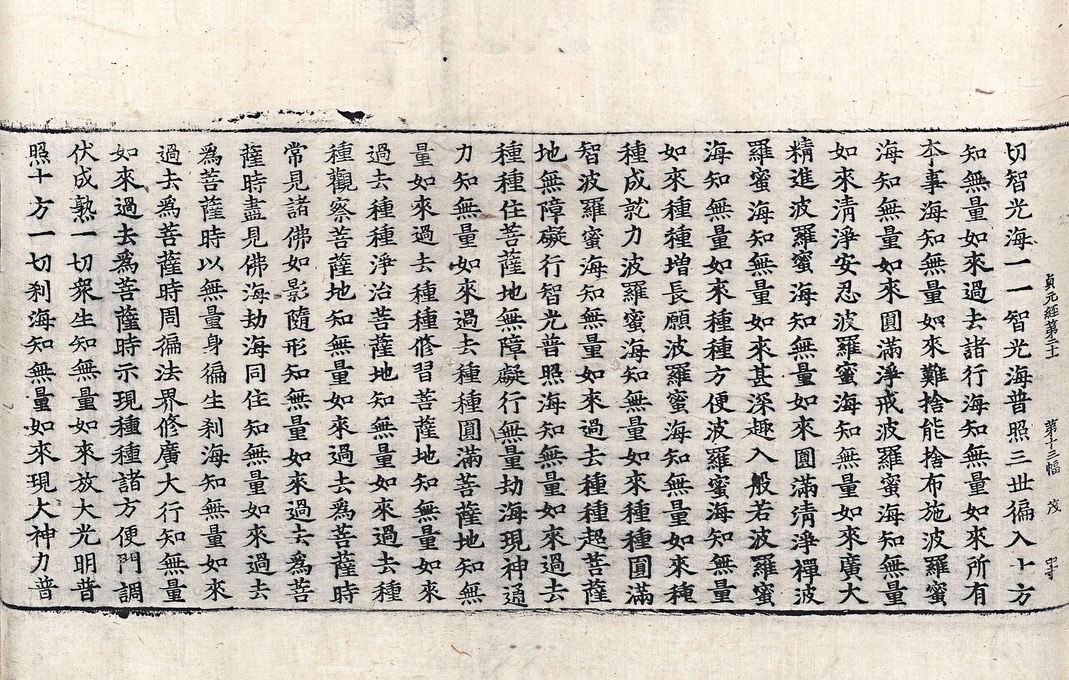 貞元經第二十 第十三幅 茂字
切智光海一一智光海普照三世徧入十方
知無量如來過去諸行海知無量如來所有
本事海知無量如來難捨能捨布施波羅蜜
海知無量如來圓滿淨戒波羅蜜海知無量
如來清淨安忍波羅蜜海知無量如來廣大
精進波羅蜜海知無量如來圓滿清淨禪波
羅蜜海知無量如來甚深趣入般若波羅蜜
海知無量如來種種方便波羅蜜海知無量
如來種種增長願波羅蜜海知無量如來種
種成就力波羅蜜海知無量如來種種圓滿
智波羅蜜海知無量如來過去種種超菩薩
地無障礙行智光普照海知無量如來過去
種種住菩薩地無障礙行無量劫海現神通
力知無量如來過去種種圓滿菩薩地知無
量如來過去種種修習菩薩地知無量如來
過去種種淨治菩薩地知無量如來過去種
種觀察菩薩地知無量如來過去爲菩薩時
常見諸佛如影隨形知無量如來過去爲菩
薩時盡見佛海劫海同住知無量如來過去
爲菩薩時以無量身徧生刹海知無量如來
過去爲菩薩時周徧法界修廣大行知無量
如來過去爲菩薩時示現種種諸方便門調
伏成熟一切衆生知無量如來放大光明普
照十方一切刹海知無量如來現大神力普